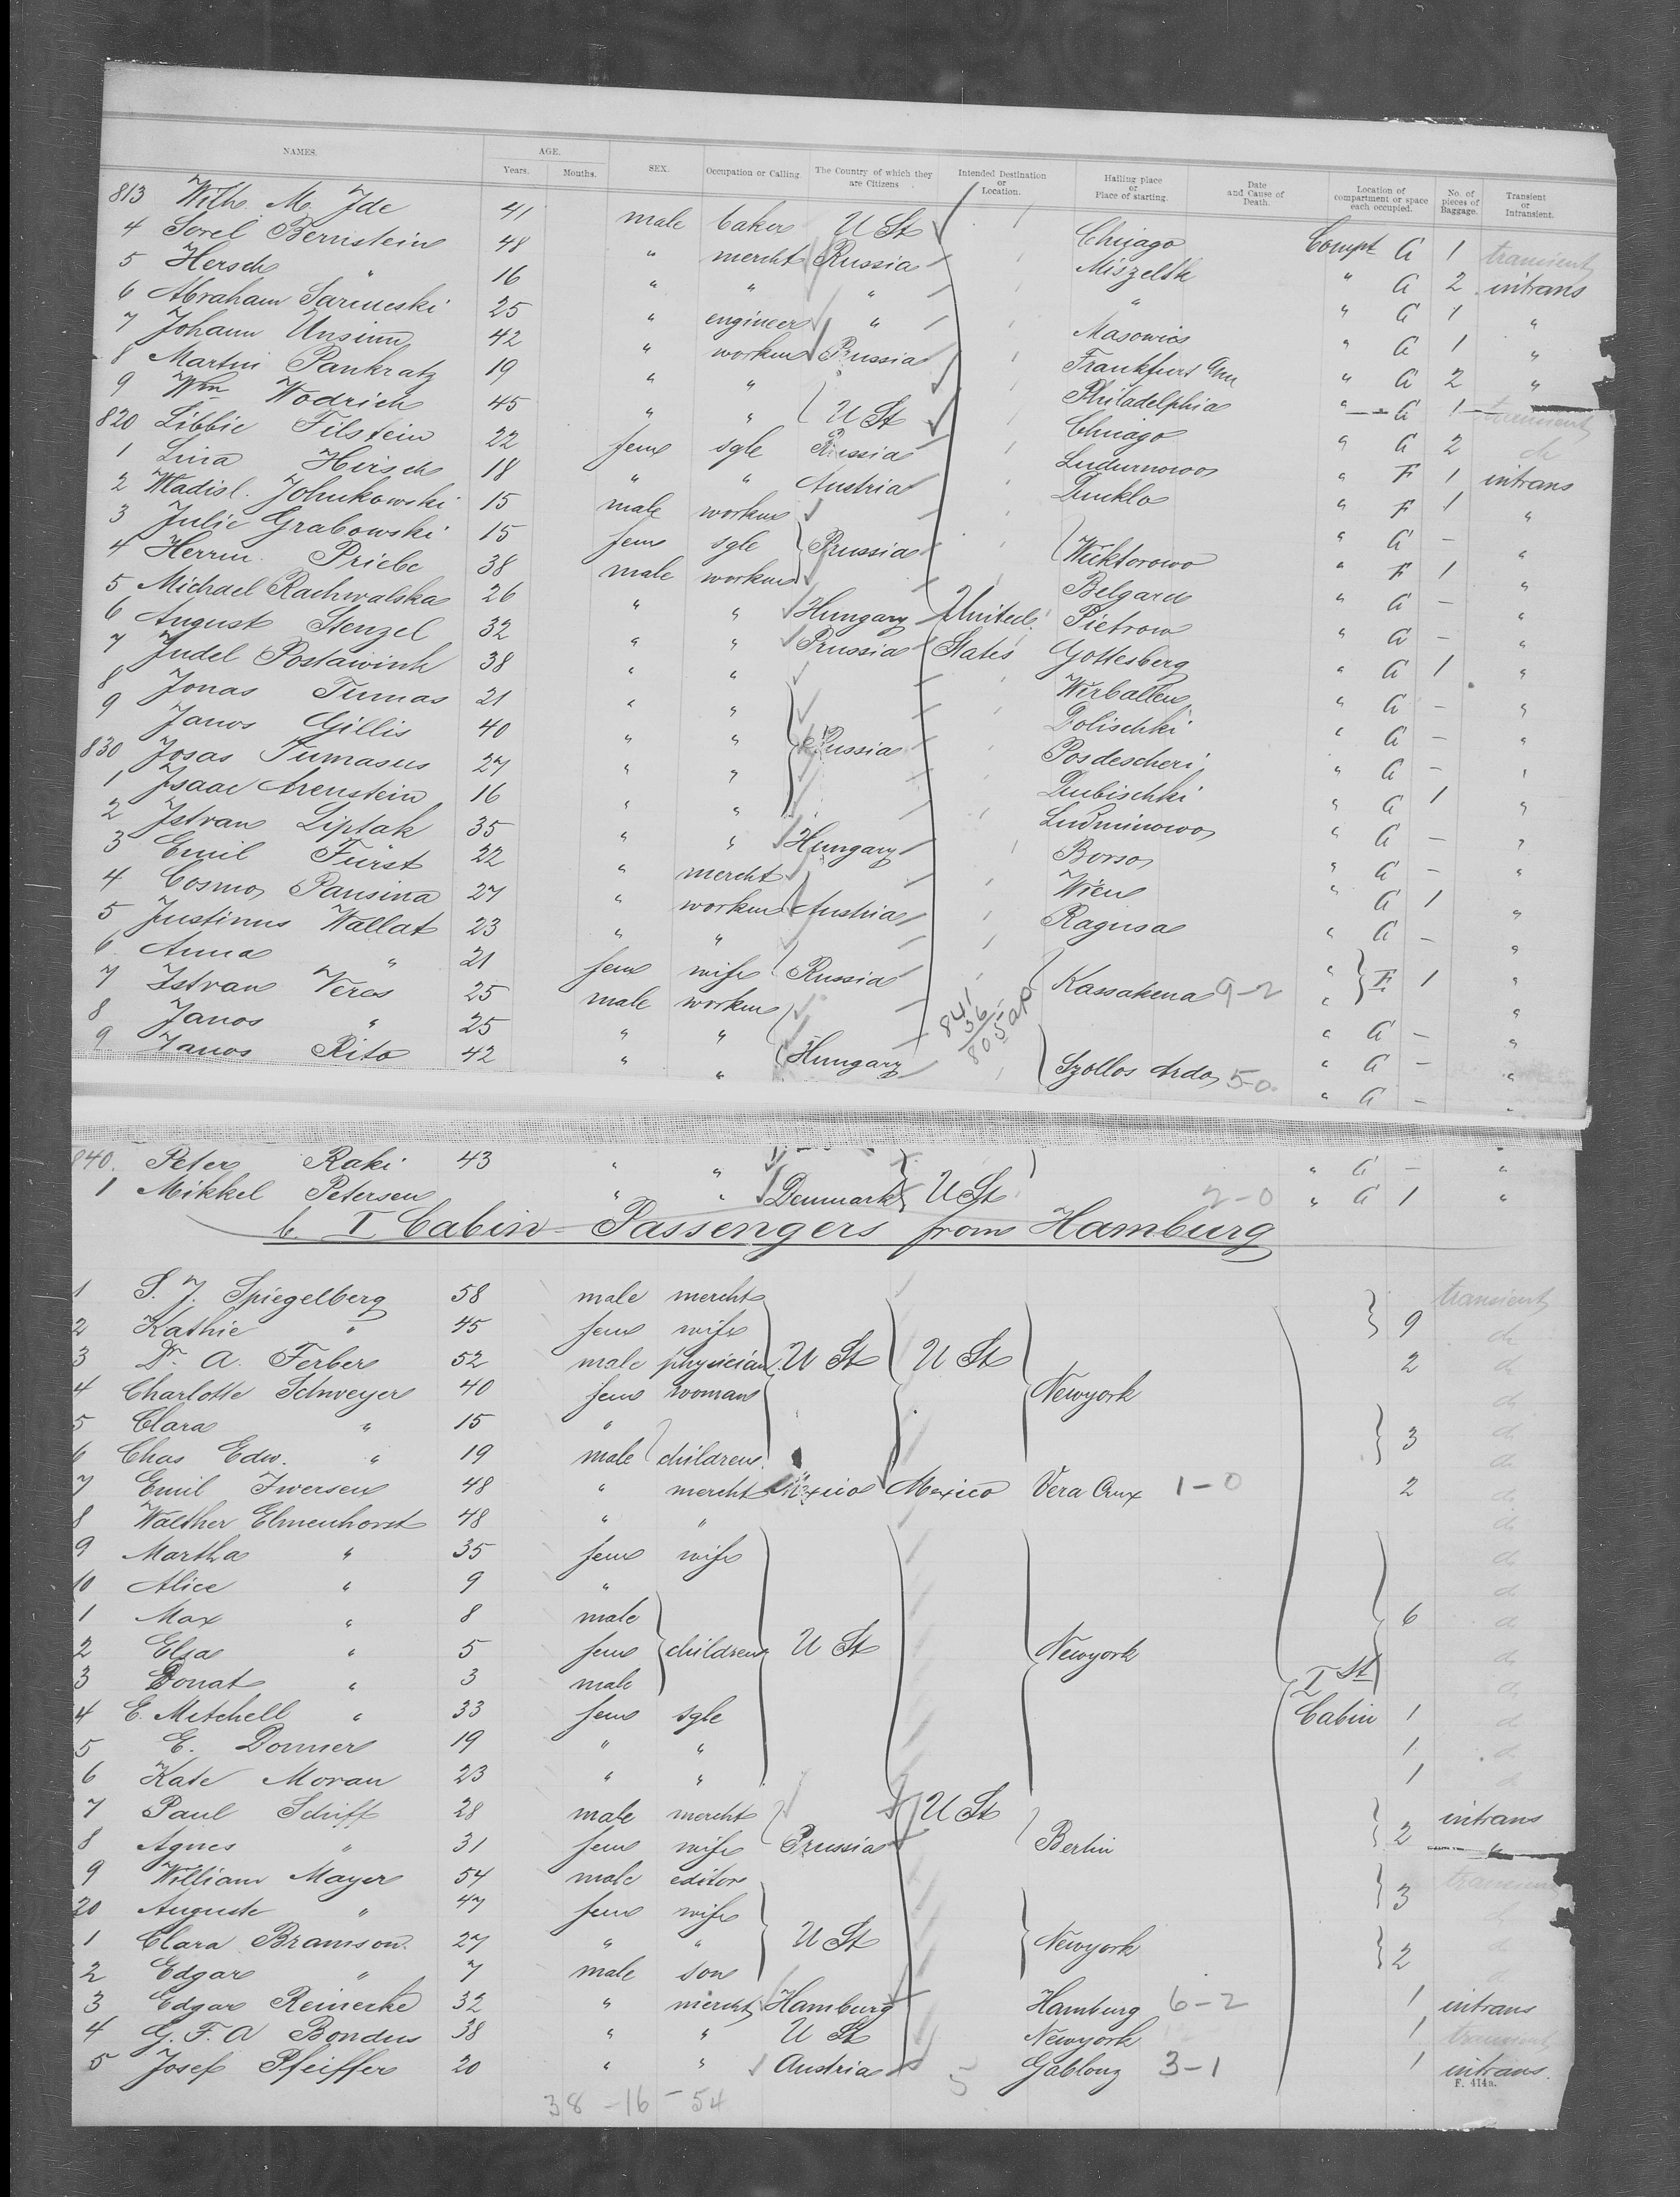 NAMES. AGE. SEX. Occupation or Calling. The Country of which they are Citizens Intended Destination or Location. Hailing place or Place of starting. Date and Cause of Death. Location of compartment or space each occupied. No. of pieces of Baggage. Transient or Intransient.
Years. Months.
813 Wilh. M. Ide 41 male baker U St Chicago Compt G 1 transient
4 Sorel Bernstein 48 " mercht Russia " G 2 intrans
5 Hersch " 16 " " " " " G 1 "
6 Abraham 25 " engineer " Masowics " G 1 "
7 Johann Unsinn 42 " workm Prussia Frankfurt G 2 "
8 Martin Pankratz 19 " " Philadelphia " G 1 transient
9 Wm Wodrich 45 " " U St Chicago " G 2 do
820 Libbie Filstein 22 fem sgle Russia " F 1 intrans
1 Lina Hirsch 18 " " Austria Dukla " F 1 "
2 Wladisl. Johukowski 15 male workm " G – "
3 Julie Grabowski 15 fem sgle Prussia Wiktorowo " F 1 "
4 Herm. Priebe 38 male workm Belgard " G – "
5 Michael Rachwalska 26 " " Hungary United Pietrow " G – "
6 August Stenzel 32 " " Prussia States Gottesberg " G 1 "
7 Judel Postawink 38 " " Wirballen " G – "
8 Jonas Tumas 21 " " Dolischki " G – "
9 Janos Gillis 40 " " Russia Posdescheri " G – "
830 Josas Tumasus 27 " " Dubischki " G 1 "
1 Isaac Arenstein 16 " " Ludminowo " G – "
2 Istvan Liptak 35 " " Hungary Borso " G – "
3 Emil Fürst 22 " mercht Wien " G 1 "
4 Cosmo Pausina 27 " workm Austria Ragusa " G – "
5 Justinus Wallat 23 " "
6 Anna " 21 fem wife Russia Kassakena 9-2 " F 1 "
7 Istvan Veres 25 male workm " G – "
8 Janos " 25 " " 841 36 805 " G – "
9 Janos Rito 42 " " Hungary Szollos Ardo 5-0 " G – "
840. Peter Raki 43 " " " G – "
1 Mikkel Petersen " " Denmark U St 2-0 " G 1 "
b. I Cabin-Passengers from Hamburg
1 S. J. Spiegelberg 58 male mercht transient
2 Kathie " 45 fem wife 9 do
3 Dr. A. Ferber 52 male physician U St U St 2 do
4 Charlotte Schweyer 40 fem woman Newyork do
5 Clara " 15 " do
6 Chas Edw. " 19 male children 3 do
7 Emil Iwersen 48 " mercht Mexico Mexico Vera Crux 1-0 2 do
8 Walther Elmenhorst 48 " " do
9 Martha " 35 fem wife do
10 Alice " 9 " do
1 Max " 8 male 6 do
2 Elsa " 5 fem children U St Newyork do
3 Donat " 3 male I St do
4 E. Mitchell " 33 fem sgle Cabin 1 do
5 E. Donner 19 " " 1 do
6 Kate Moran 23 " " 1 do
7 Paul Schiff 28 male mercht U St intrans
8 Agnes " 31 fem wife Prussia Berlin 2 "
9 William Mayer 54 male editor transient
20 Auguste " 47 fem wife 3 do
1 Clara Bramson 27 " " U St Newyork do
2 Edgar " 7 male son 2 do
3 Edgar Reinecke 32 " mercht Hamburg Hamburg 6-2 1 intrans
4 G. F. A Bondus 38 " " U St Newyork 1 transient
5 Josef Pfeiffer 20 " " Austria 5 Gablonz 3-1 1 intrans.
F. 414a.
38-16-54